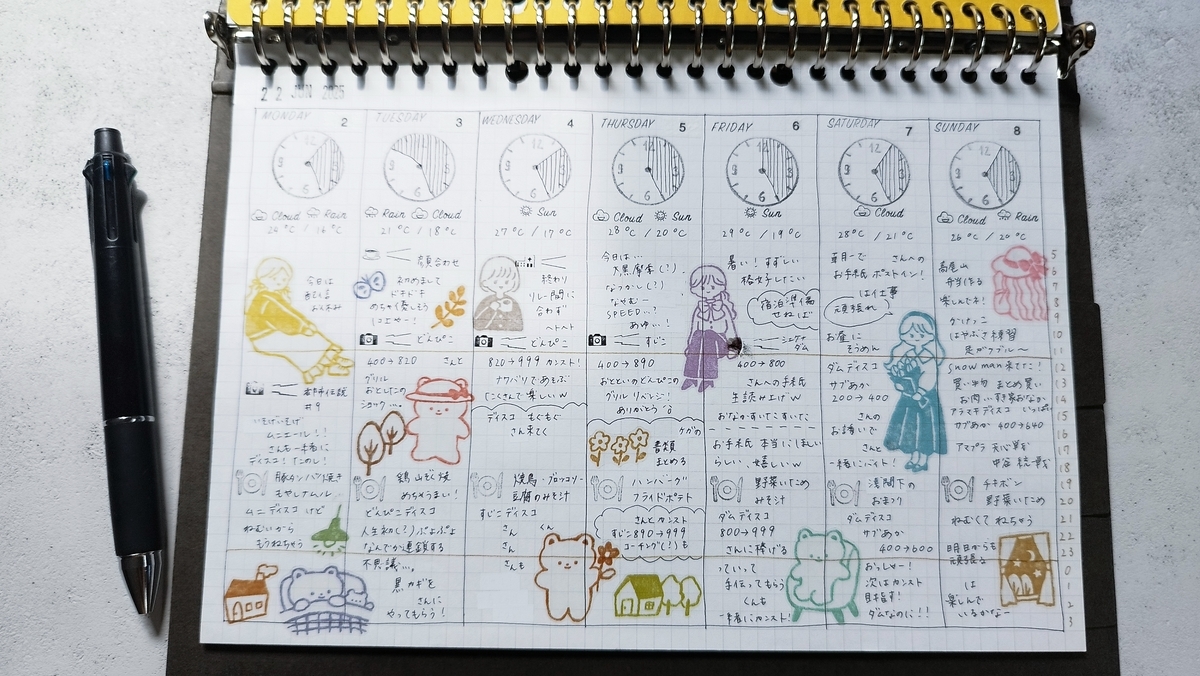 22 JUN 2025
MONDAY 2
Cloud Rain
24°C / 16°C
今日は
お休み
#9
豚タンパン焼き
もやしナムル
ねむいから
もうねちゃう
TUESDAY 3
Rain Cloud
21°C / 18°C
顔合わせ
はじめまして
ドキドキ
どんぴこ
400→820 さんと
グリル
おとしたの
ショック…
めちゃうま!
どんぴこディスコ
人生初(!)ぷよぷよ
なんでか連鎖する
不思議…
黒カギを
さんに
やってもらう!
WEDNESDAY 4
Sun
27°C / 17°C
終わり
リレー間に
合わず
ヘトヘト
どんぴこ
820→999 カンスト!
ナワバリであそぶ
にくさんで楽しいw
ディスコ もぐもぐ
さん来てく
焼鳥・ブロッコリー
豆腐のみそ汁
すじこディスコ
さん くん
さん
さん
さんも
THURSDAY 5
Cloud Sun
28°C / 20°C
今日は…
大黒摩季(?)
なつかし(?)
なぜむー
SPEED…?
あゆ…!
すじこ
400→890
おとといのどんぴこの
グリル リベンジ!
ありがとう
ケガの
書類
まとめる
ハンバーグ
フライドポテト
さんとカンスト
すじこ 890→999
コーチング(!)も
FRIDAY 6
Sun
29°C / 19°C
暑い! すずしい
格好したい
宿泊準備
せねば
シェケナ
ダム
400→800
さんへの手紙
生読み上げw
おなかすいたすいた
お手紙 本当にほしい
らしい、嬉しいw
野菜いため
みそ汁
ダムディスコ
800→999
さんに捧げる
っていって
手伝ってもらう
くんも
一緒にカンスト!
SATURDAY 7
Cloud
28°C / 21°C
さんへの
お手紙 ポストイン!
は仕事
頑張れ
お昼に
そうめん
ダムディスコ
サブあか
200→400
さんの
お誘いで
さんと
一緒にバイト!
浅間下の
おまつり
ダムディスコ
サブあか
400→600
おっしゃー!
次はカンスト
目指す!
ダムなのに!!
SUNDAY 8
Cloud Rain
26°C / 20°C
高尾山
弁当作る
楽しんでネ!
はやぶさ練習
足がプルプル〜
snow man 来てた!
買い物 まとめ買い
お肉
アラマキディスコ いっぱい
サブあか 400→640
アマプラ
チキボン
野菜いため
ねむくて ねちゃう
明日からも
頑張る
は
楽しんで
いるかなー
5
6
7
8
9
10
11
12
13
14
15
16
17
18
19
20
21
22
23
0
1
2
3